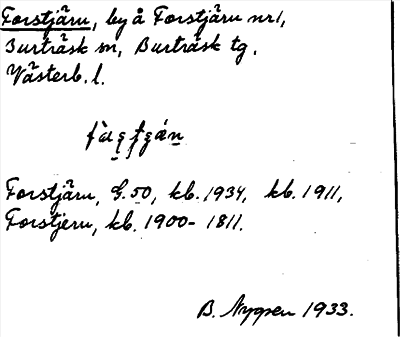 Forstjärn, by å Forstjärn nr 1,
Burträsk sn, Burträsk tg.
Västerb. l.
Forstjärn, G.50, kb. 1934, kb. 1911,
Forstjern, kb. 1900-1811.
B. Nygren 1933.